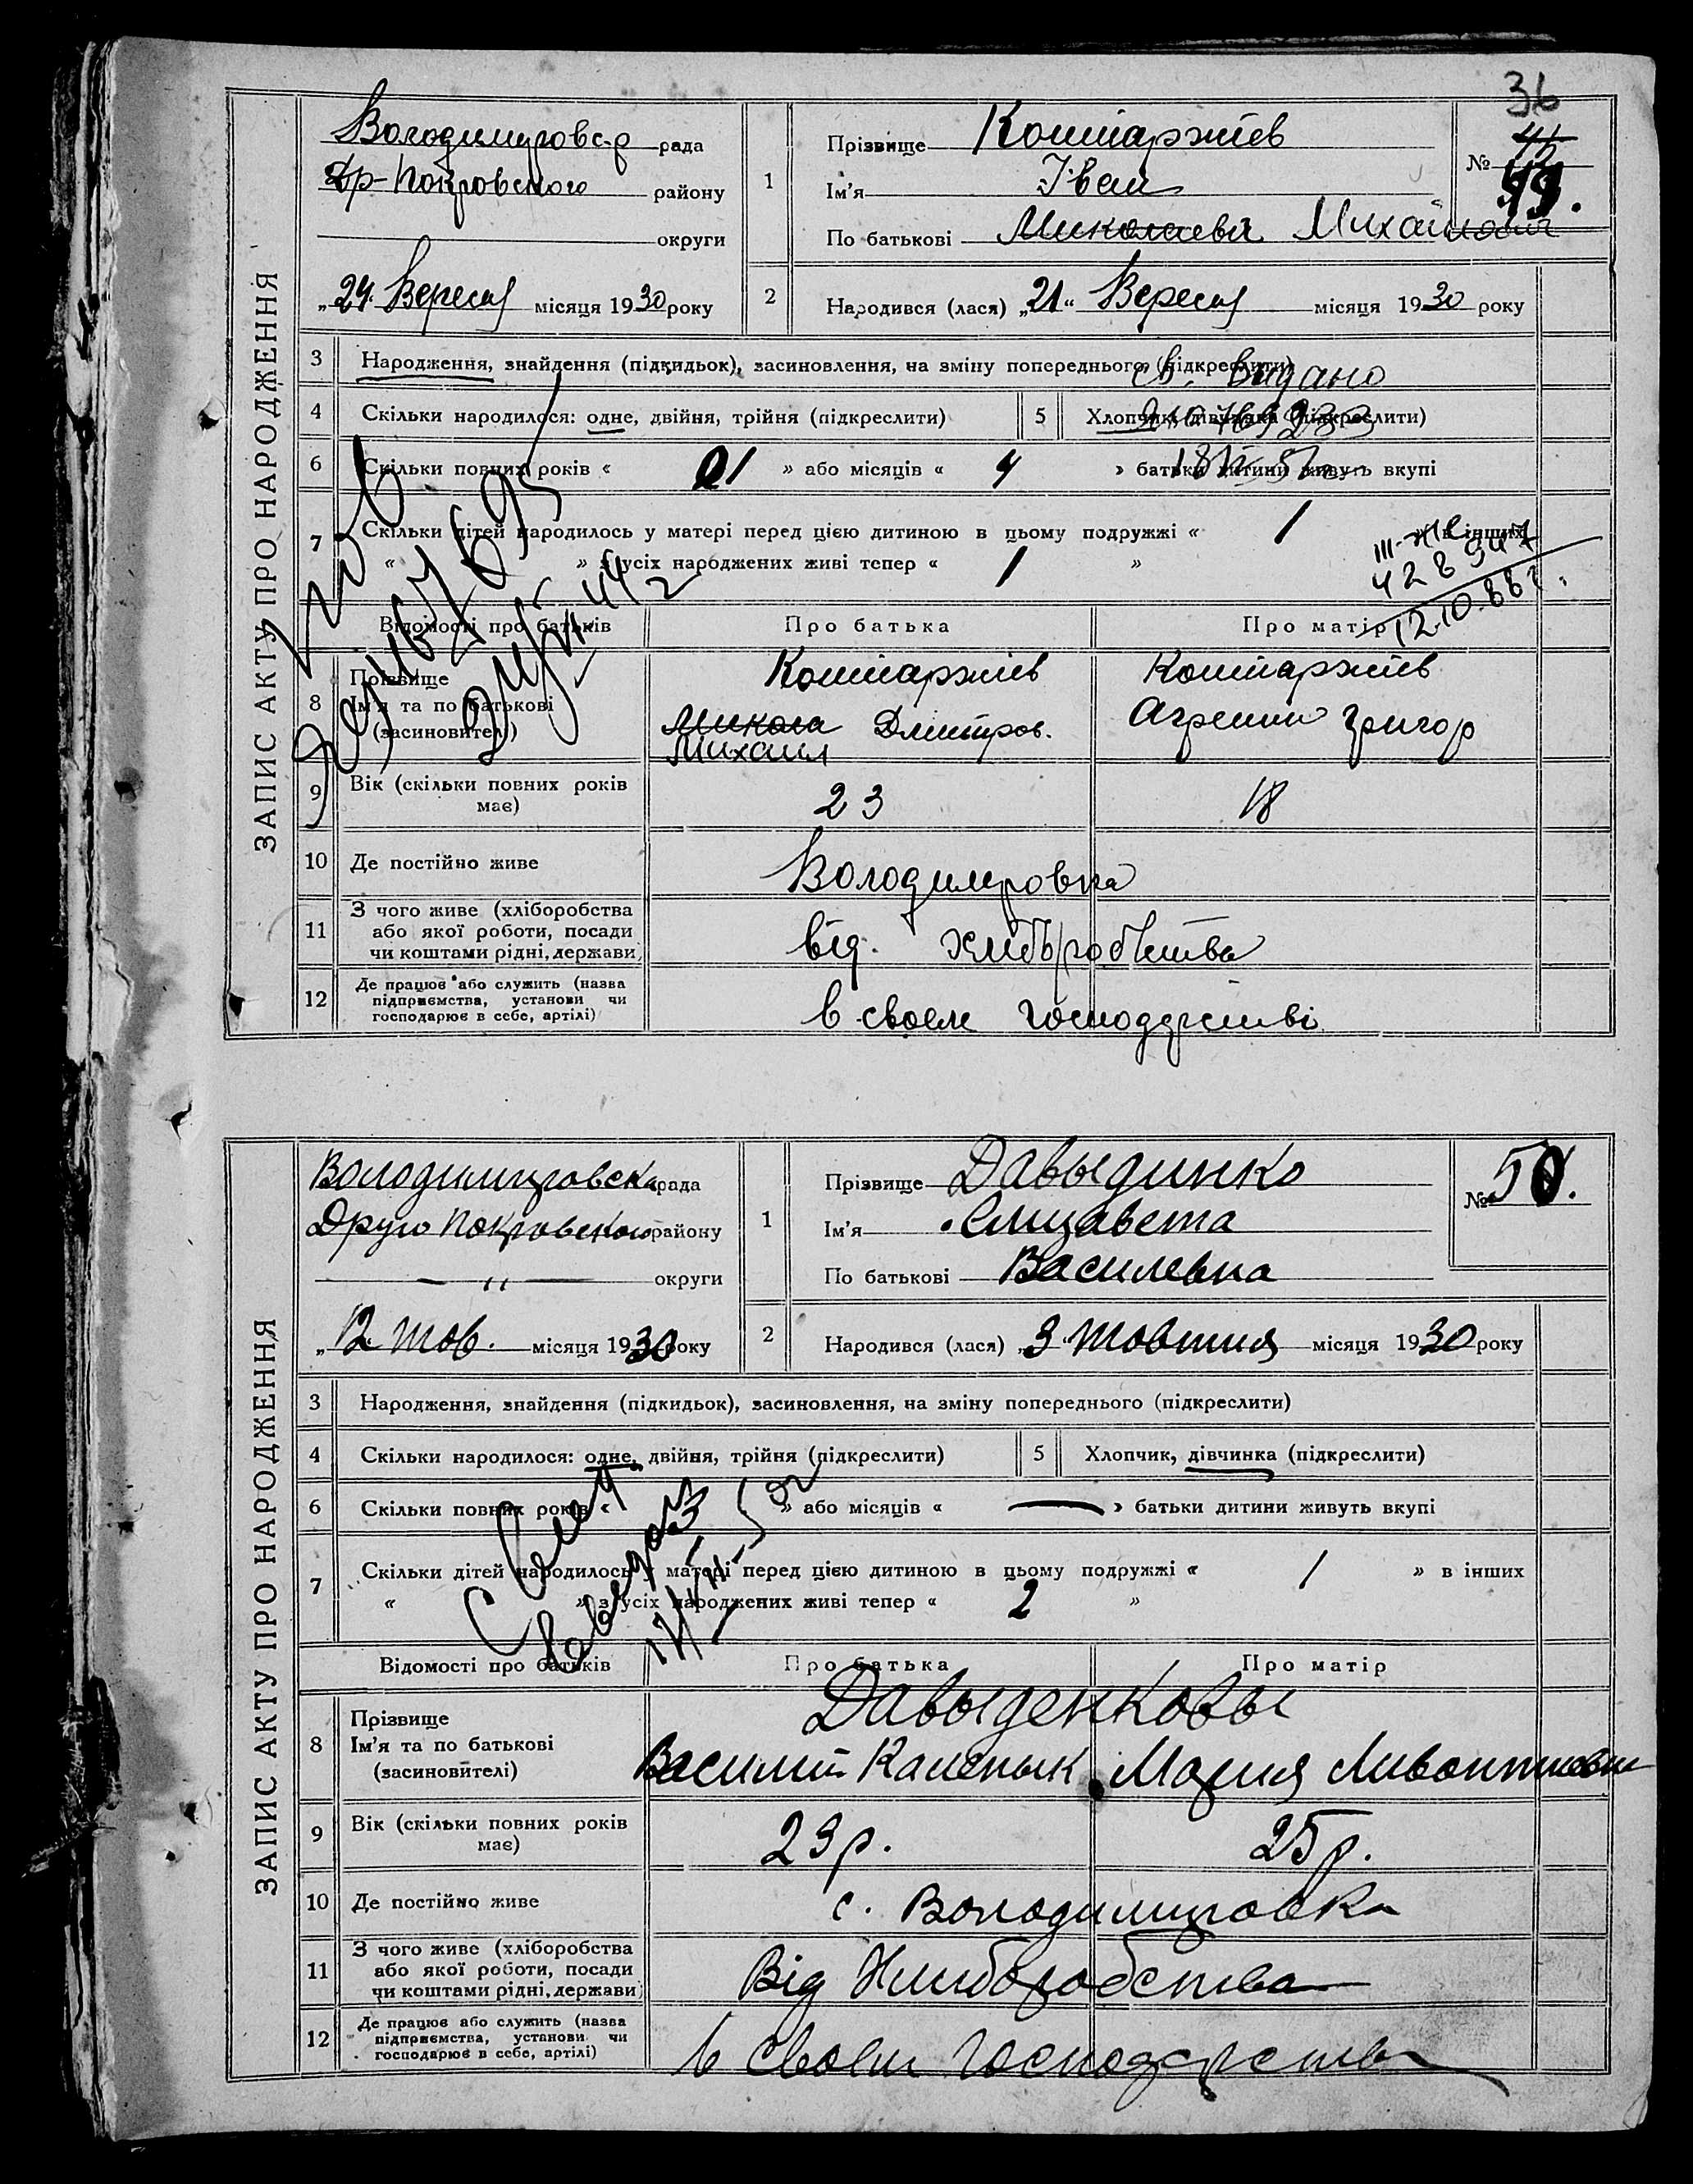 36
ЗАПИС АКТУ ПРО НАРОДЖЕННЯ
Володимировс-р рада
Др-Покровского району
округи
„24" Вересня місяця 1930 року
1
Прізвище
Ім'я Іван
По батькові Миколаевич Михайлович
№ 49.
2
Народився (лася) „21" Вересня місяця 1930 року
3 Народження, знайдення (підкидьок), засиновлення, на зміну попереднього (підкреслити)
св. видано
4 Скільки народилося: одне, двійня, трійня (підкреслити)
5 Хлопчик, дівчинка (підкреслити)
6 Скільки повних років « 1 » або місяців « 4 » батьки дитини живуть вкупі
7 Скільки дітей народилось у матері перед цією дитиною в цьому подружжі « 1 » в інших
« » з усіх народжених живі тепер « 1 »
III-
428947
12.10.88г.
Відомості про батьків Про батька Про матір
8 Прізвище
Ім'я та по батькові
(засиновителі)
Микола Дмитров. Григор
Михаил
9 Вік (скільки повних років має) 23 18
10 Де постійно живе Володимировка
11 З чого живе (хліборобства
або якої роботи, посади
чи коштами рідні, держави)
від. хліборобства
12 Де працює або служить (назва
підприємства, установи чи
господарює в себе, артілі)
в своем господарстві
ЗАПИС АКТУ ПРО НАРОДЖЕННЯ
Володимировска рада
Друго Покровского району
— „ — округи
„12 Жов. місяця 1930 року
1
Прізвище Давыдинко
Ім'я Елизавета
По батькові Василевна
№ 50.
2
Народився (лася) „3 Жовтня місяця 1930 року
3 Народження, знайдення (підкидьок), засиновлення, на зміну попереднього (підкреслити)
4 Скільки народилося: одне, двійня, трійня (підкреслити)
5 Хлопчик, дівчинка (підкреслити)
6 Скільки повних років « » або місяців « — » батьки дитини живуть вкупі
7 Скільки дітей народилось у матері перед цією дитиною в цьому подружжі « 1 » в інших
« » з усіх народжених живі тепер « 2 »
Відомості про батьків Про батька Про матір
8 Прізвище
Ім'я та по батькові
(засиновителі)
Давыденковы
Василий Мария
9 Вік (скільки повних років має) 29р. 25р.
10 Де постійно живе с. Володимировка
11 З чого живе (хліборобства
або якої роботи, посади
чи коштами рідні, держави)
Від Хлиборобства
12 Де працює або служить (назва
підприємства, установи чи
господарює в себе, артілі)
в своем господарства